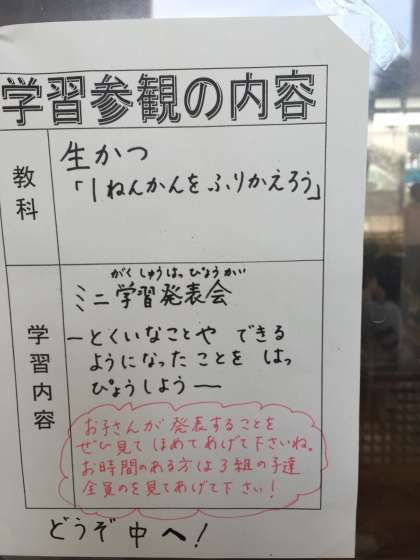 学習参観の内容
教科
生かつ
「1ねんかんをふりかえろう」
学習内容
がくしゅうはっぴょうかい
ミニ学習発表会
ーとくいなことや できる
ようになったことを はっ
ぴょうしようー
お子さんが発表することを
ぜひ見てほめてあげて下さいね。
お時間のある方は3組の子達
全員のを見てあげて下さい!
どうぞ中へ!